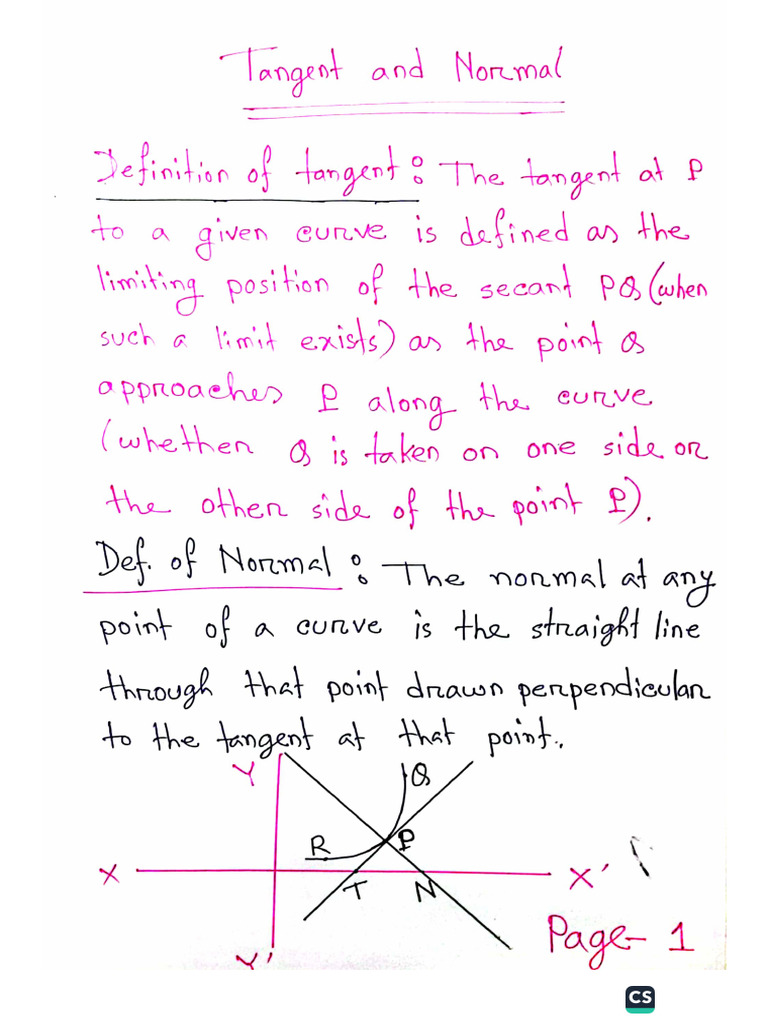 Tangent and Normal
Definition of tangent: The tangent at P
to a given curve is defined as the
limiting position of the secant PQ (when
such a limit exists) as the point Q
approaches P along the curve
(whether Q is taken on one side or
the other side of the point P).
Def. of Normal: The normal at any
point of a curve is the straight line
through that point drawn perpendicular
to the tangent at that point.
Y Q
R P
X X'
T N
Page-1
Y'
CS